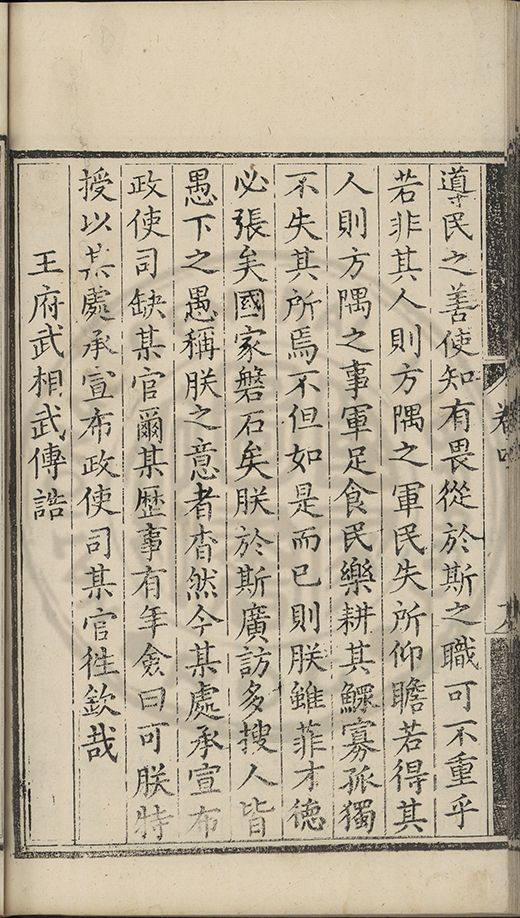 卷四
導民之善使知有畏從於斯之職可不重乎
若非其人則方隅之軍民失所仰瞻若得其
人則方隅之事軍足食民樂耕其鰥寡孤獨
不失其所焉不但如是而已則朕雖菲才德
必張矣國家磐石矣朕於斯廣訪多搜人皆
愚下之愚稱朕之意者杳然今某處承宣布
政使司缺某官爾某歷事有年僉曰可朕特
授以某處承宣布政使司某官徃欽哉
王府武相武傅誥